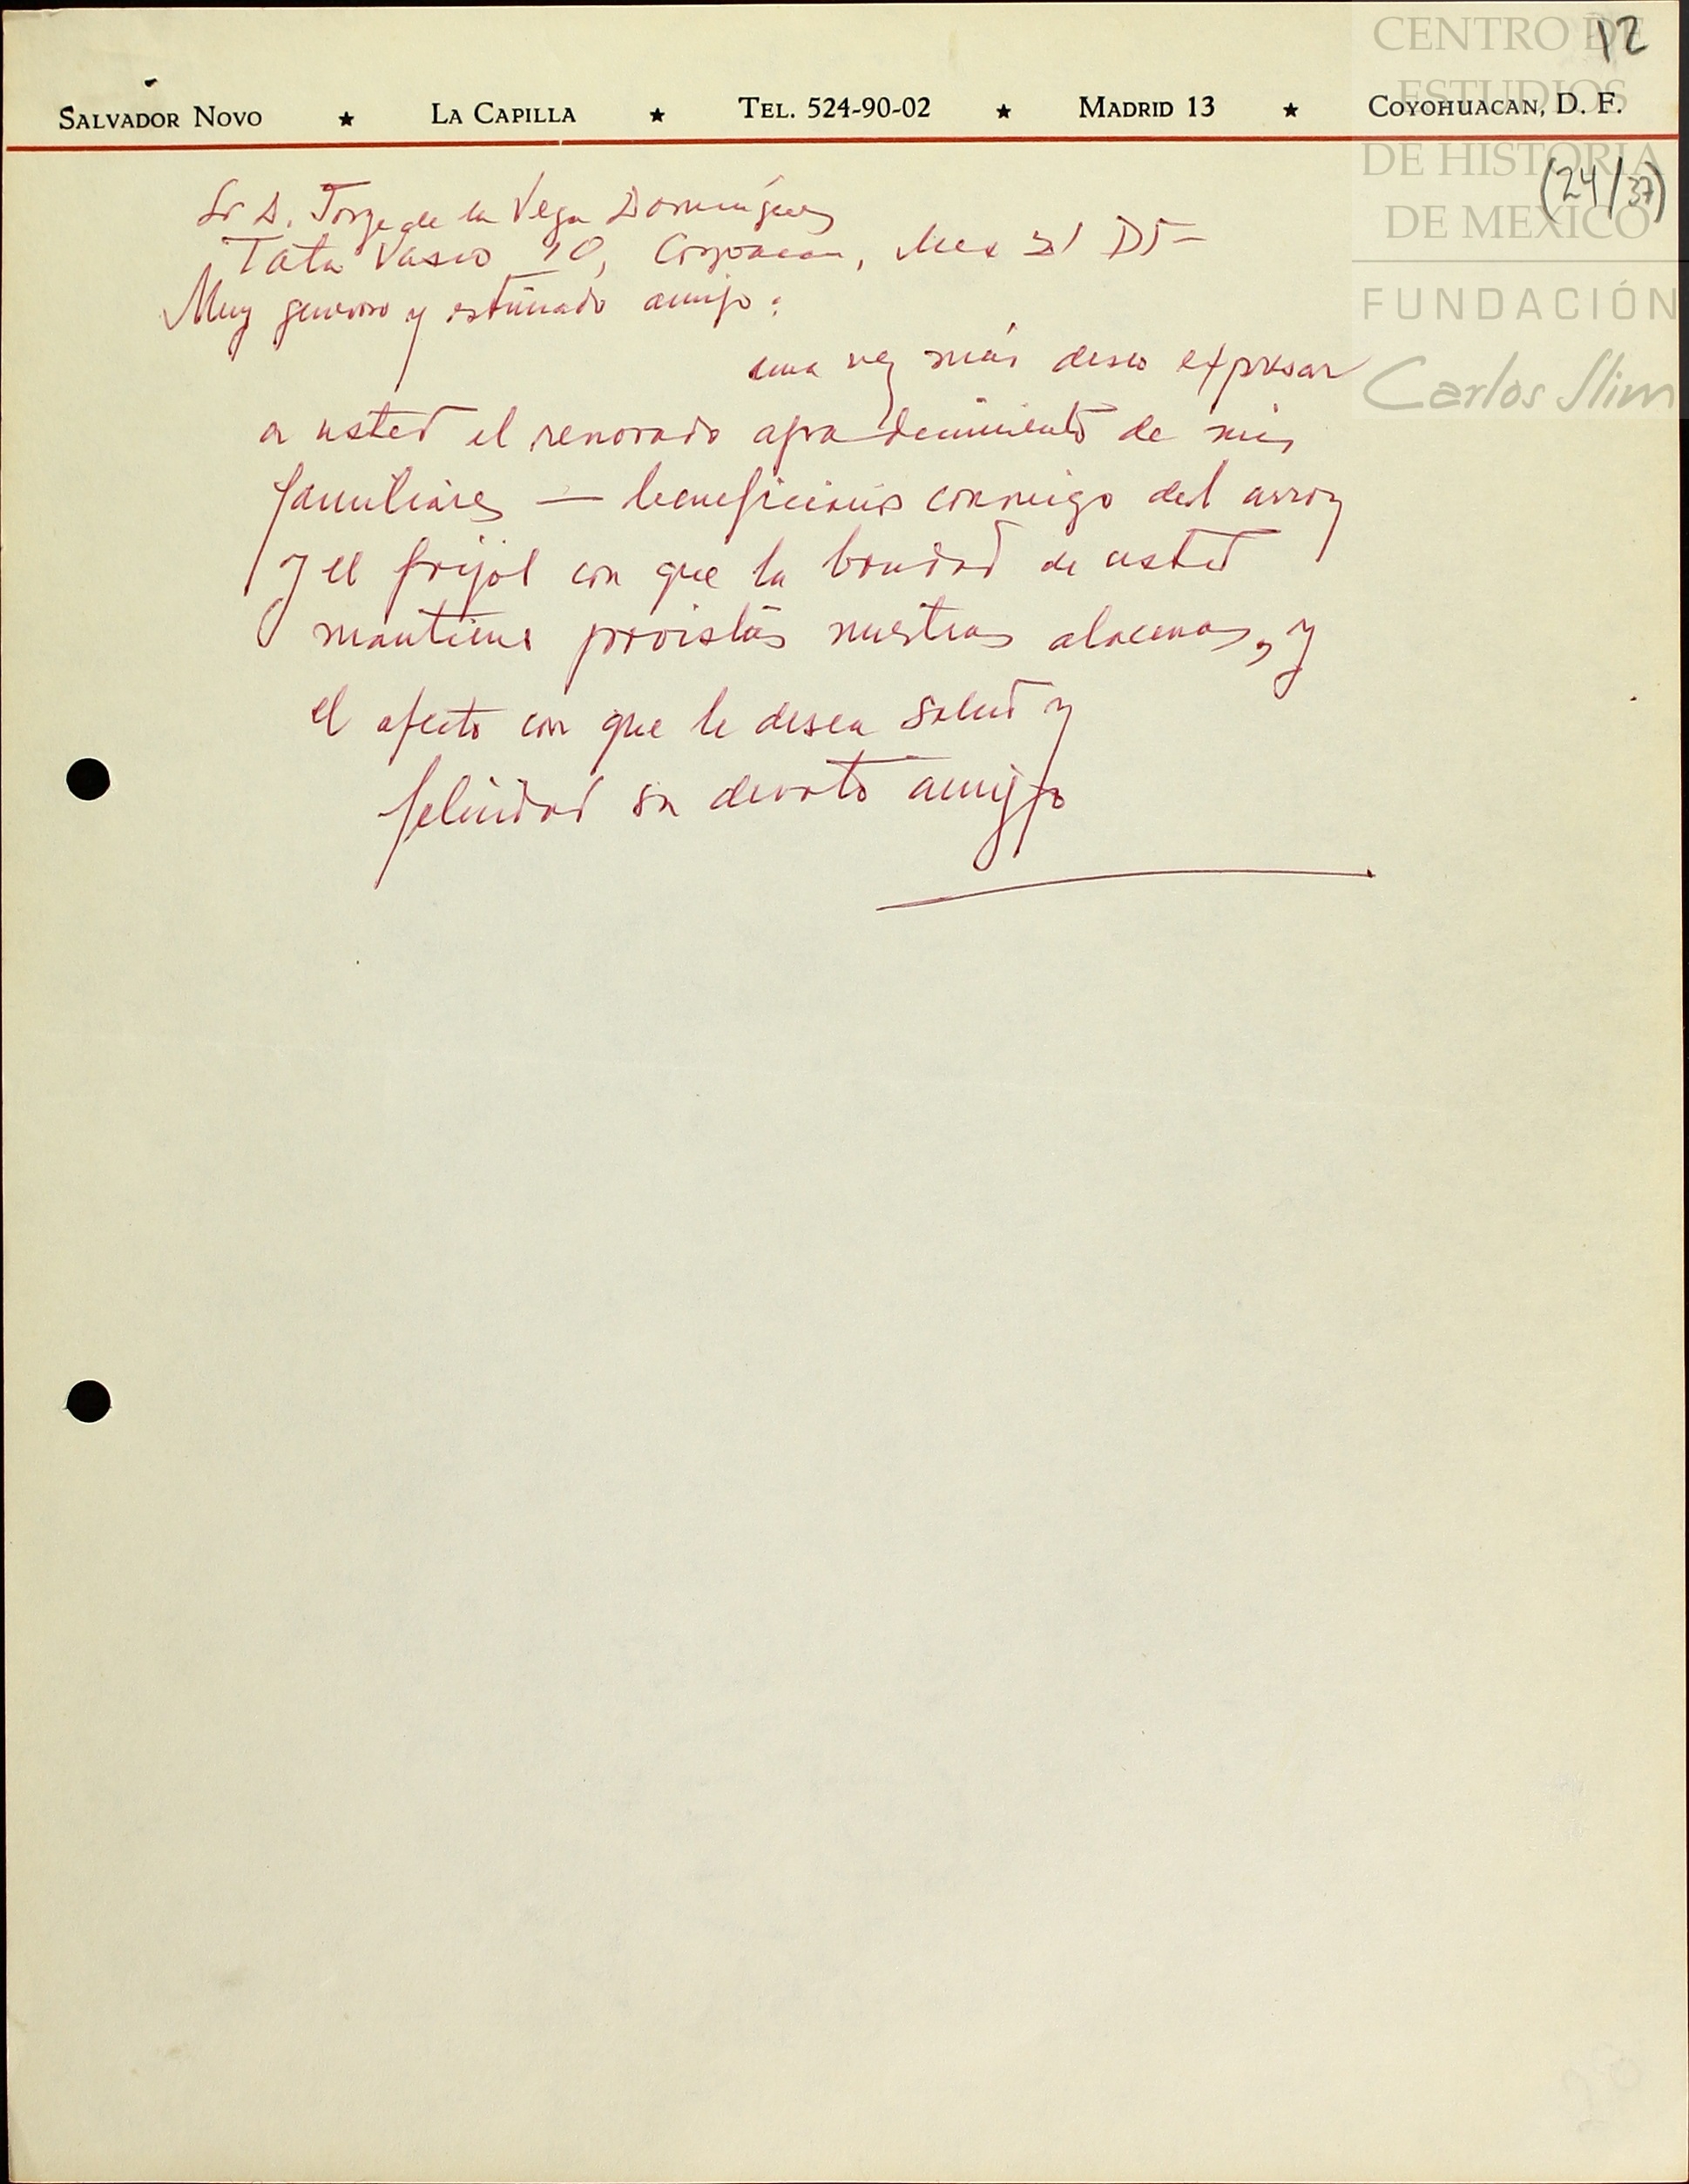 12
SALVADOR NOVO ★ LA CAPILLA ★ TEL. 524-90-02 ★ MADRID 13 ★ COYOHUACAN, D. F.
(24/37)
CENTRO DE
ESTUDIOS
DE HISTORIA
DE MEXICO
FUNDACIÓN
Carlos Slim
Sr D. Jorge de la Vega Domínguez
Tata Vasco 10, Coyoacan, Mex 21 DF-
Muy generoso y estimado amigo:
una vez más deseo expresar
a usted el renovado agradecimiento de mis
familiares — beneficiarios conmigo del arroz
y el frijol con que la bondad de usted
mantiene provistas nuestras alacenas, y
el afecto con que le desea salud y
felicidad su devoto amigo